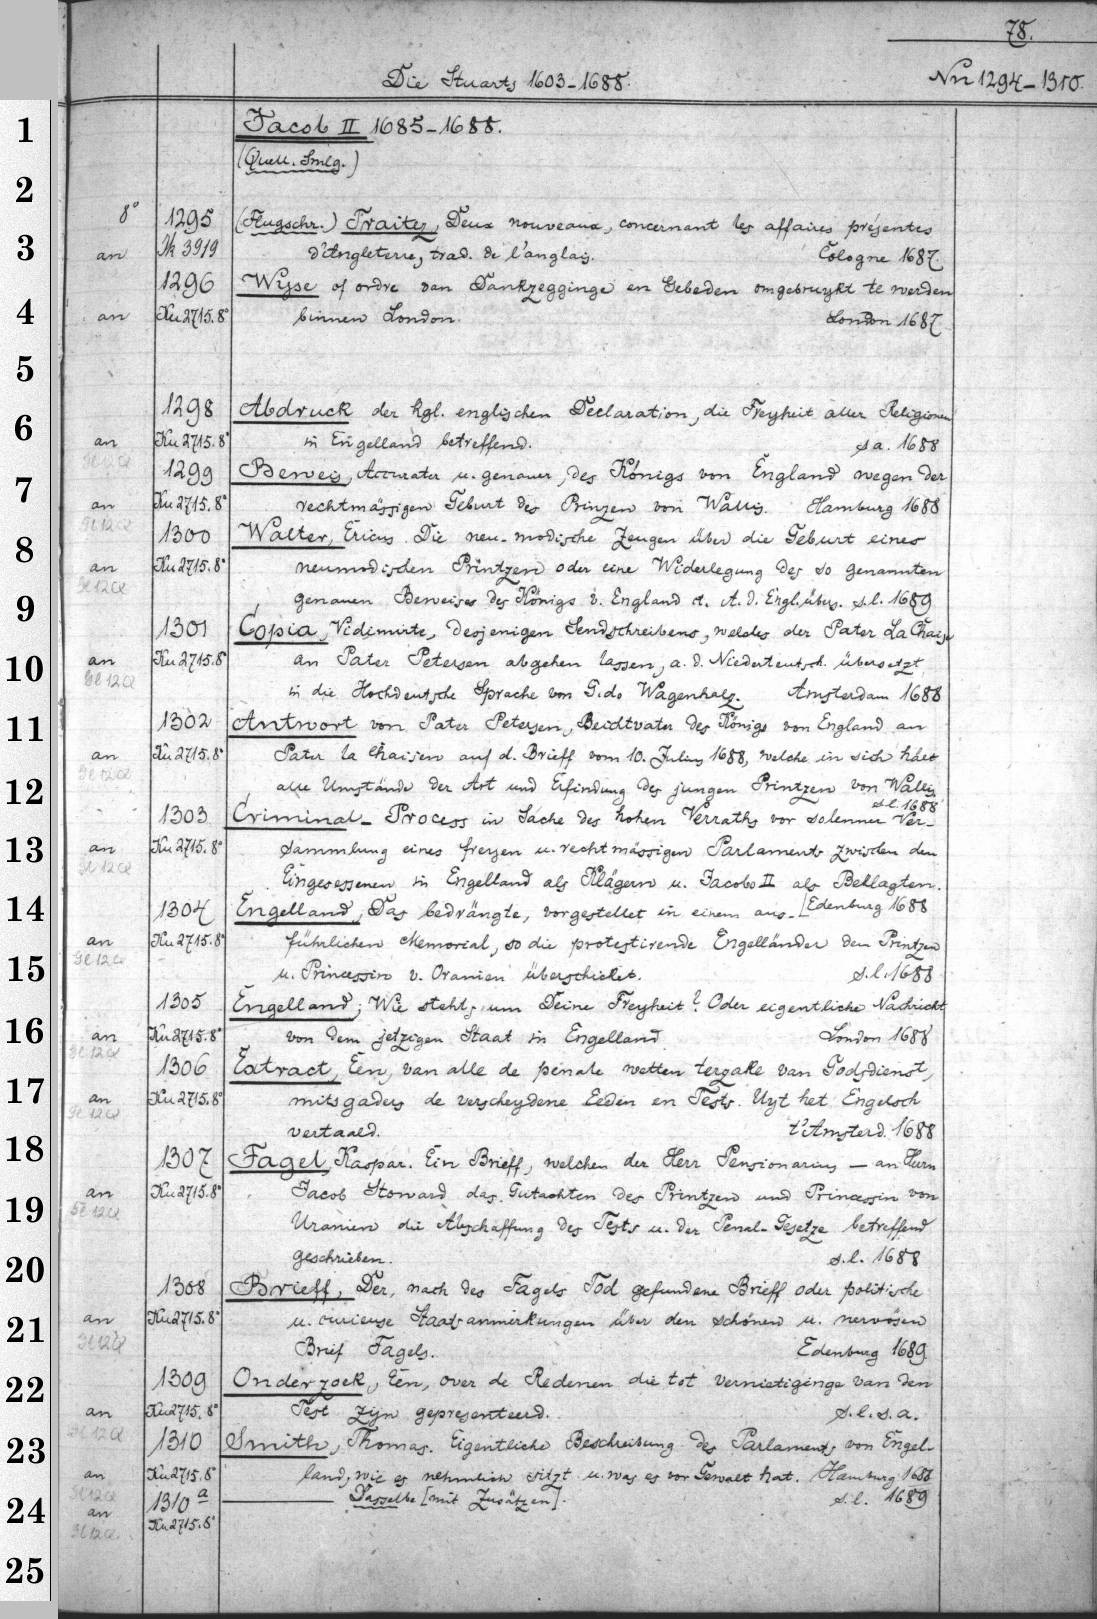 78.
Die Stuarts 1603-1688.
Nrr 1294-1310.
1
Jacob II 1685-1688.
(Quell. Smlg.)
2
8° 1295 (Flugschr.) Traitez, Deux nouveaux, concernant les affaires présentes
3
an 3919 d'Angleterre, trad. de l'anglais. Cologne 1687.
1296 Wyse of ordre van Dankzegginge en Gebeden omgebruykt te werden
4
an Ku 2715.8° binnen London. London 1687
5
1298 Abdruck der kgl. englischen Declaration, die Freyheit aller Religionen
6
an Ku 2715.8° in Engelland betreffend. s.a. 1688
Gl 12a
1299 Beweis, Accurater u. genauer, des Königs von England wegen der
7
an Ku 2715.8° rechtmässigen Geburt des Prinzen von Wallis. Hamburg 1688
Gl 12a
1300 Walter, Ericus. Die neu-modische Zeugen über die Geburt eines
8
an Ku 2715.8° neumodischen Printzen oder eine Widerlegung des so genannten
Gl 12a
9
genauen Beweises des Königs v. England etc. A. d. Engl. übers. s.l. 1689
1301 Copia, Vidimirte, desjenigen Sendschreibens, welches der Pater La Chaise
10
an Ku 2715.8° an Pater Petersen abgehen lassen, a. d. Niederteutsch. übersetzt
Gl 12a
in die Hochdeutsche Sprache von G.do Wagenhalz. Amsterdam 1688
11
1302 Antwort von Pater Petersen, Beichtvater des Königs von England an
an Ku 2715.8° Pater la Chaisen auf d. Brieff vom 10. Julius 1688, welche in sich hält
Gl 12a
12
alle Umstände der Art und Erfindung des jungen Printzen von Wallis.
s.l. 1688
1303 Criminal-Process in Sache des hohen Verraths vor solenner Ver-
13
an Ku 2715.8° sammlung eines freyen u. rechtmässigen Parlaments zwischen den
Gl 12a
Eingesessenen in Engelland als Klägern u. Jacobo II als Beklagten.
14
1304 Engelland, Das bedrängte, vorgestellet in einem aus- [Edenburg 1688
an Ku 2715.8° führlichen Memorial, so die protestirende Engelländer dem Printzen
Gl 12a
15
u. Princessin v. Oranien überschicket. s.l. 1688
1305 Engelland; Wie stehts um Deine Freyheit? Oder eigentliche Nachricht
16
an Ku 2715.8° von dem jetzigen Staat in Engelland London 1688
Gl 12a
1306 Extract, Een, van alle de penale wetten terzake van Godsdienst,
17
an Ku 2715.8° mitsgaders de verscheydene Eeden en Tests. Uyt het Engelsch
Gl 12a
vertaald. t'Amsterd. 1688
18
1307 Fagel, Kaspar. Ein Brieff, welchen der Herr Pensionarius — an Herrn
an Ku 2715.8° Jacob Stoward das Gutachten des Printzen und Princessin von
Gl 12a
19
Uranien die Abschaffung des Tests u. der Penal-Gesetze betreffend
geschrieben. s.l. 1688
20
1308 Brieff, Der, nach des Fagels Tod gefundene Brieff oder politische
21
an Ku 2715.8° u. curieuse Staatsanmerkungen über den schönen u. nervösen
Gl 12a
Brief Fagels. Edenburg 1689
22
1309 Onderzoek, Een, over de Redenen die tot vernietiginge van den
an Ku 2715.8° Test zijn gepresenteerd. s.l.s.a.
Gl 12a
23
1310 Smith, Thomas. Eigentliche Beschreibung des Parlaments von Engel-
an Ku 2715.8° land, wie es nehmlich sitzt u. was es vor Gewalt hat. Hamburg 1688
Gl 12a
24
1310 a — Dasselbe [mit Zusätzen]. s.l. 1689
an Ku 2715.8°
Gl 12a
25